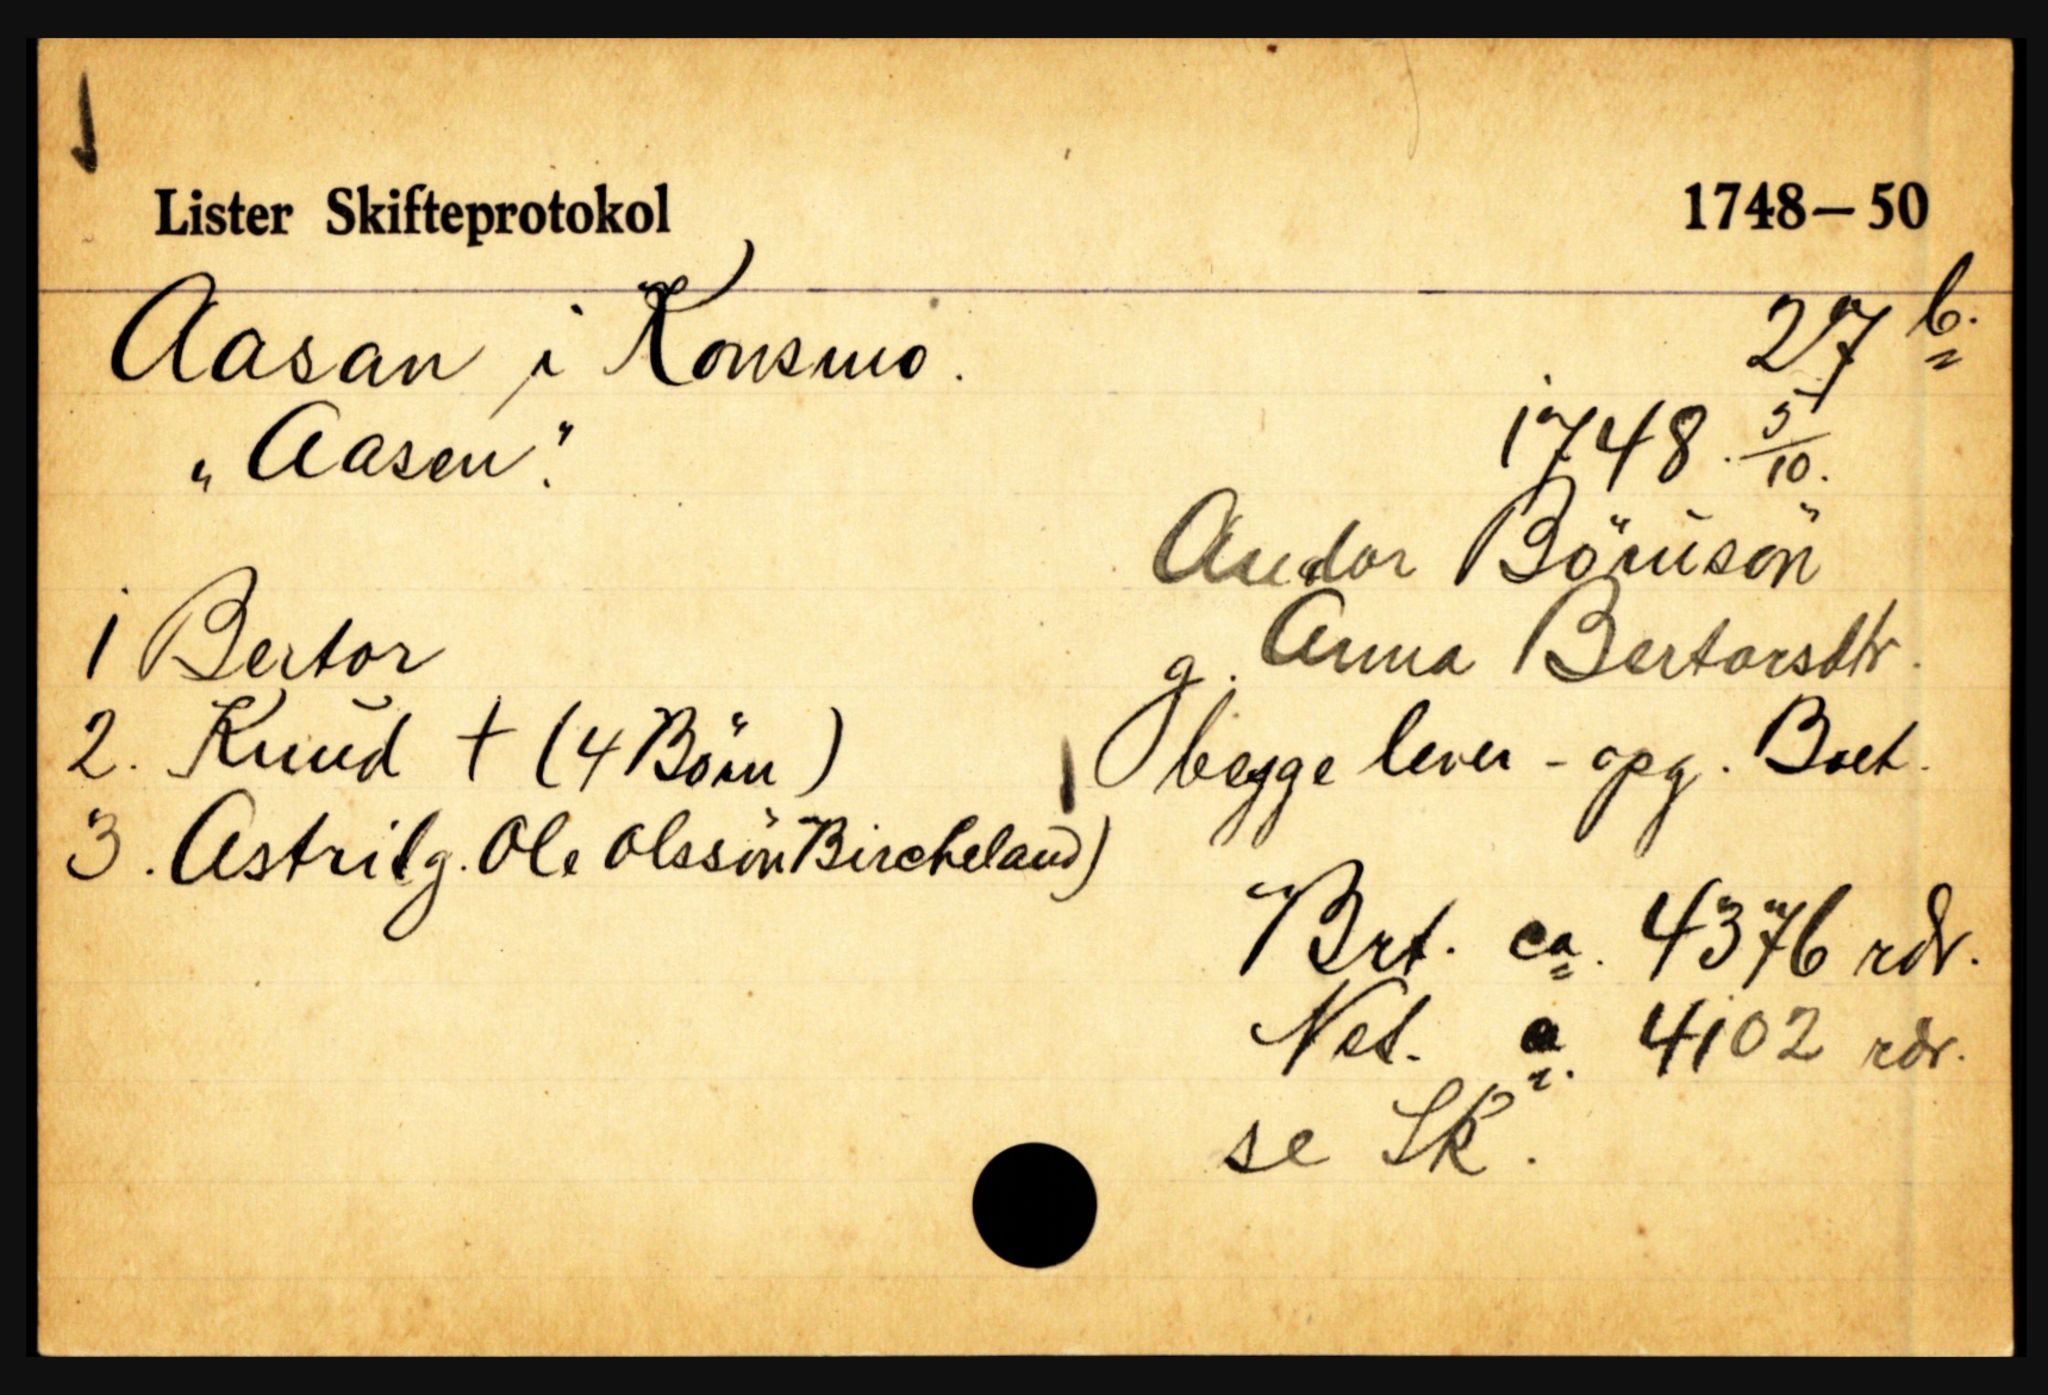 Lister Skifteprotokol 1748–50
Aasan i Konsmo. 27 b.
„Aasen". 1748. 5/10.
Andor Börüsön
1 Bertor
g. Anna Bertorsdtr.
2. Knud † (4 Börn)
begge lever - opg. Boet.
3. Astri g. Ole Olssön Bircheland)
Brt. ca. 4376 rdr.
Net. a. 4102 rdr.
se Sk.